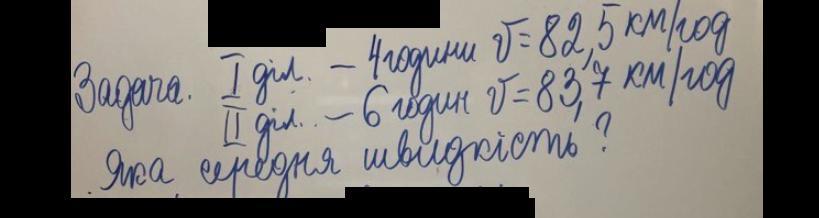 Задача. I діл. – 4 години V = 82,5 км/год
II діл. – 6 годин V = 83,7 км/год
Яка середня швидкість?